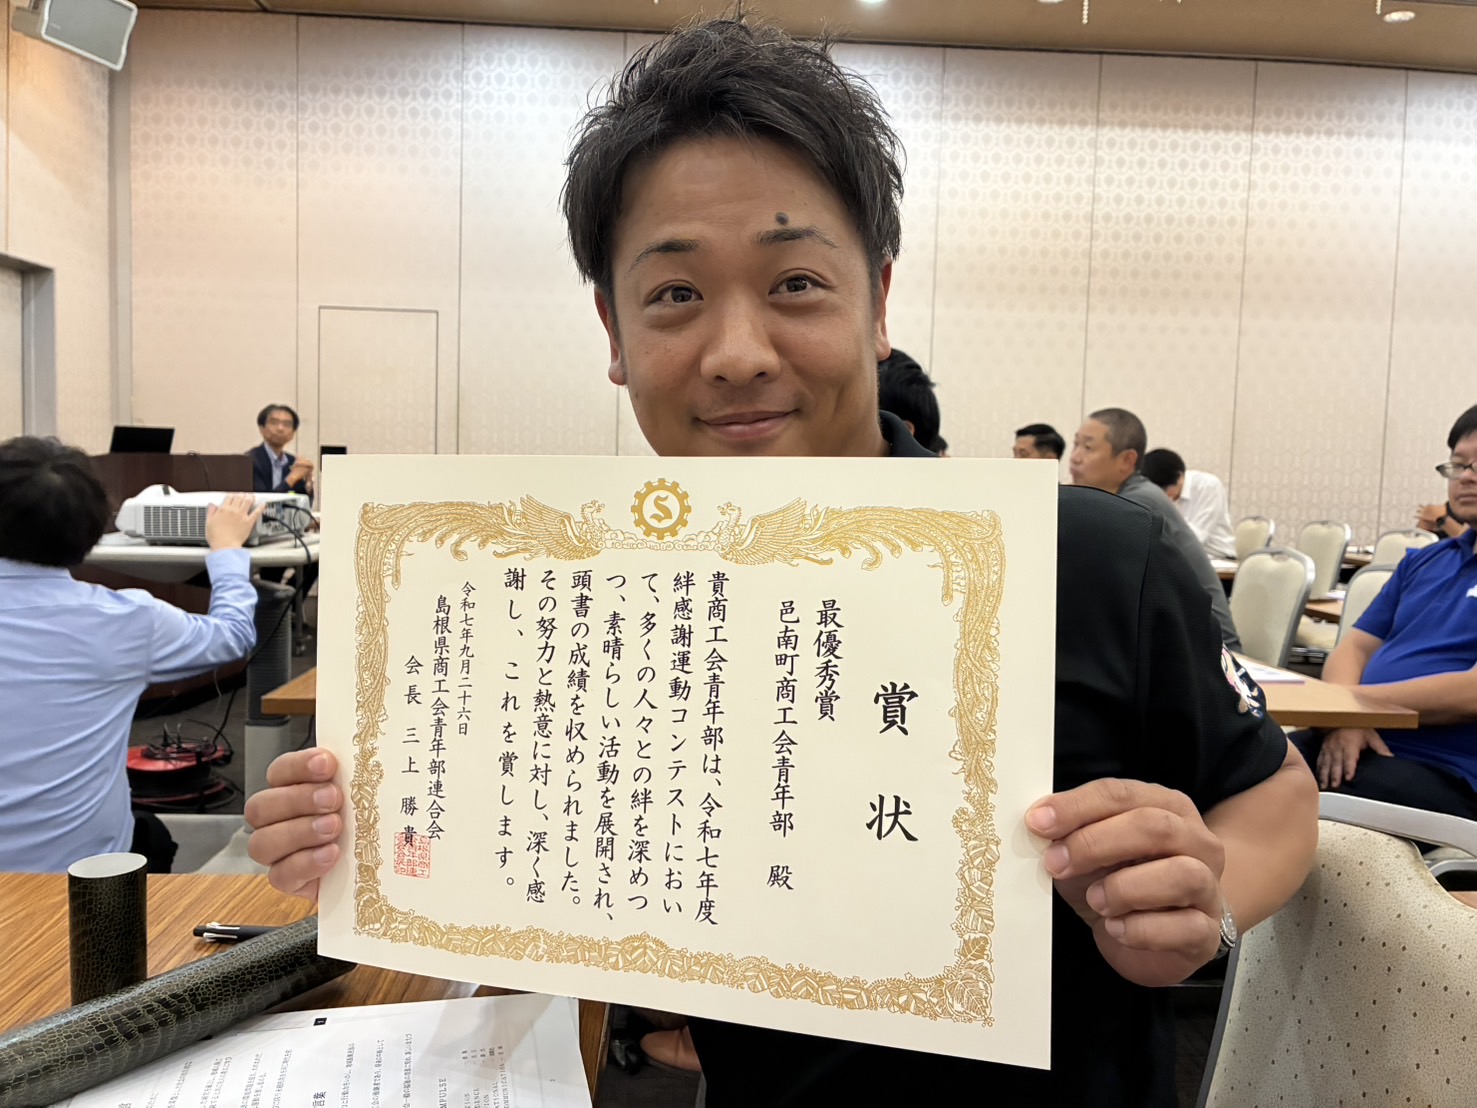 賞状
最優秀賞
邑南町商工会青年部 殿
貴商工会青年部は、令和七年度
絆感謝運動コンテストにおい
て、多くの人々との絆を深めつ
つ、素晴らしい活動を展開され、
頭書の成績を収められました。
その努力と熱意に対し、深く感
謝し、これを賞します。
令和七年九月二十六日
島根県商工会青年部連合会
会長 三上 勝貴
S